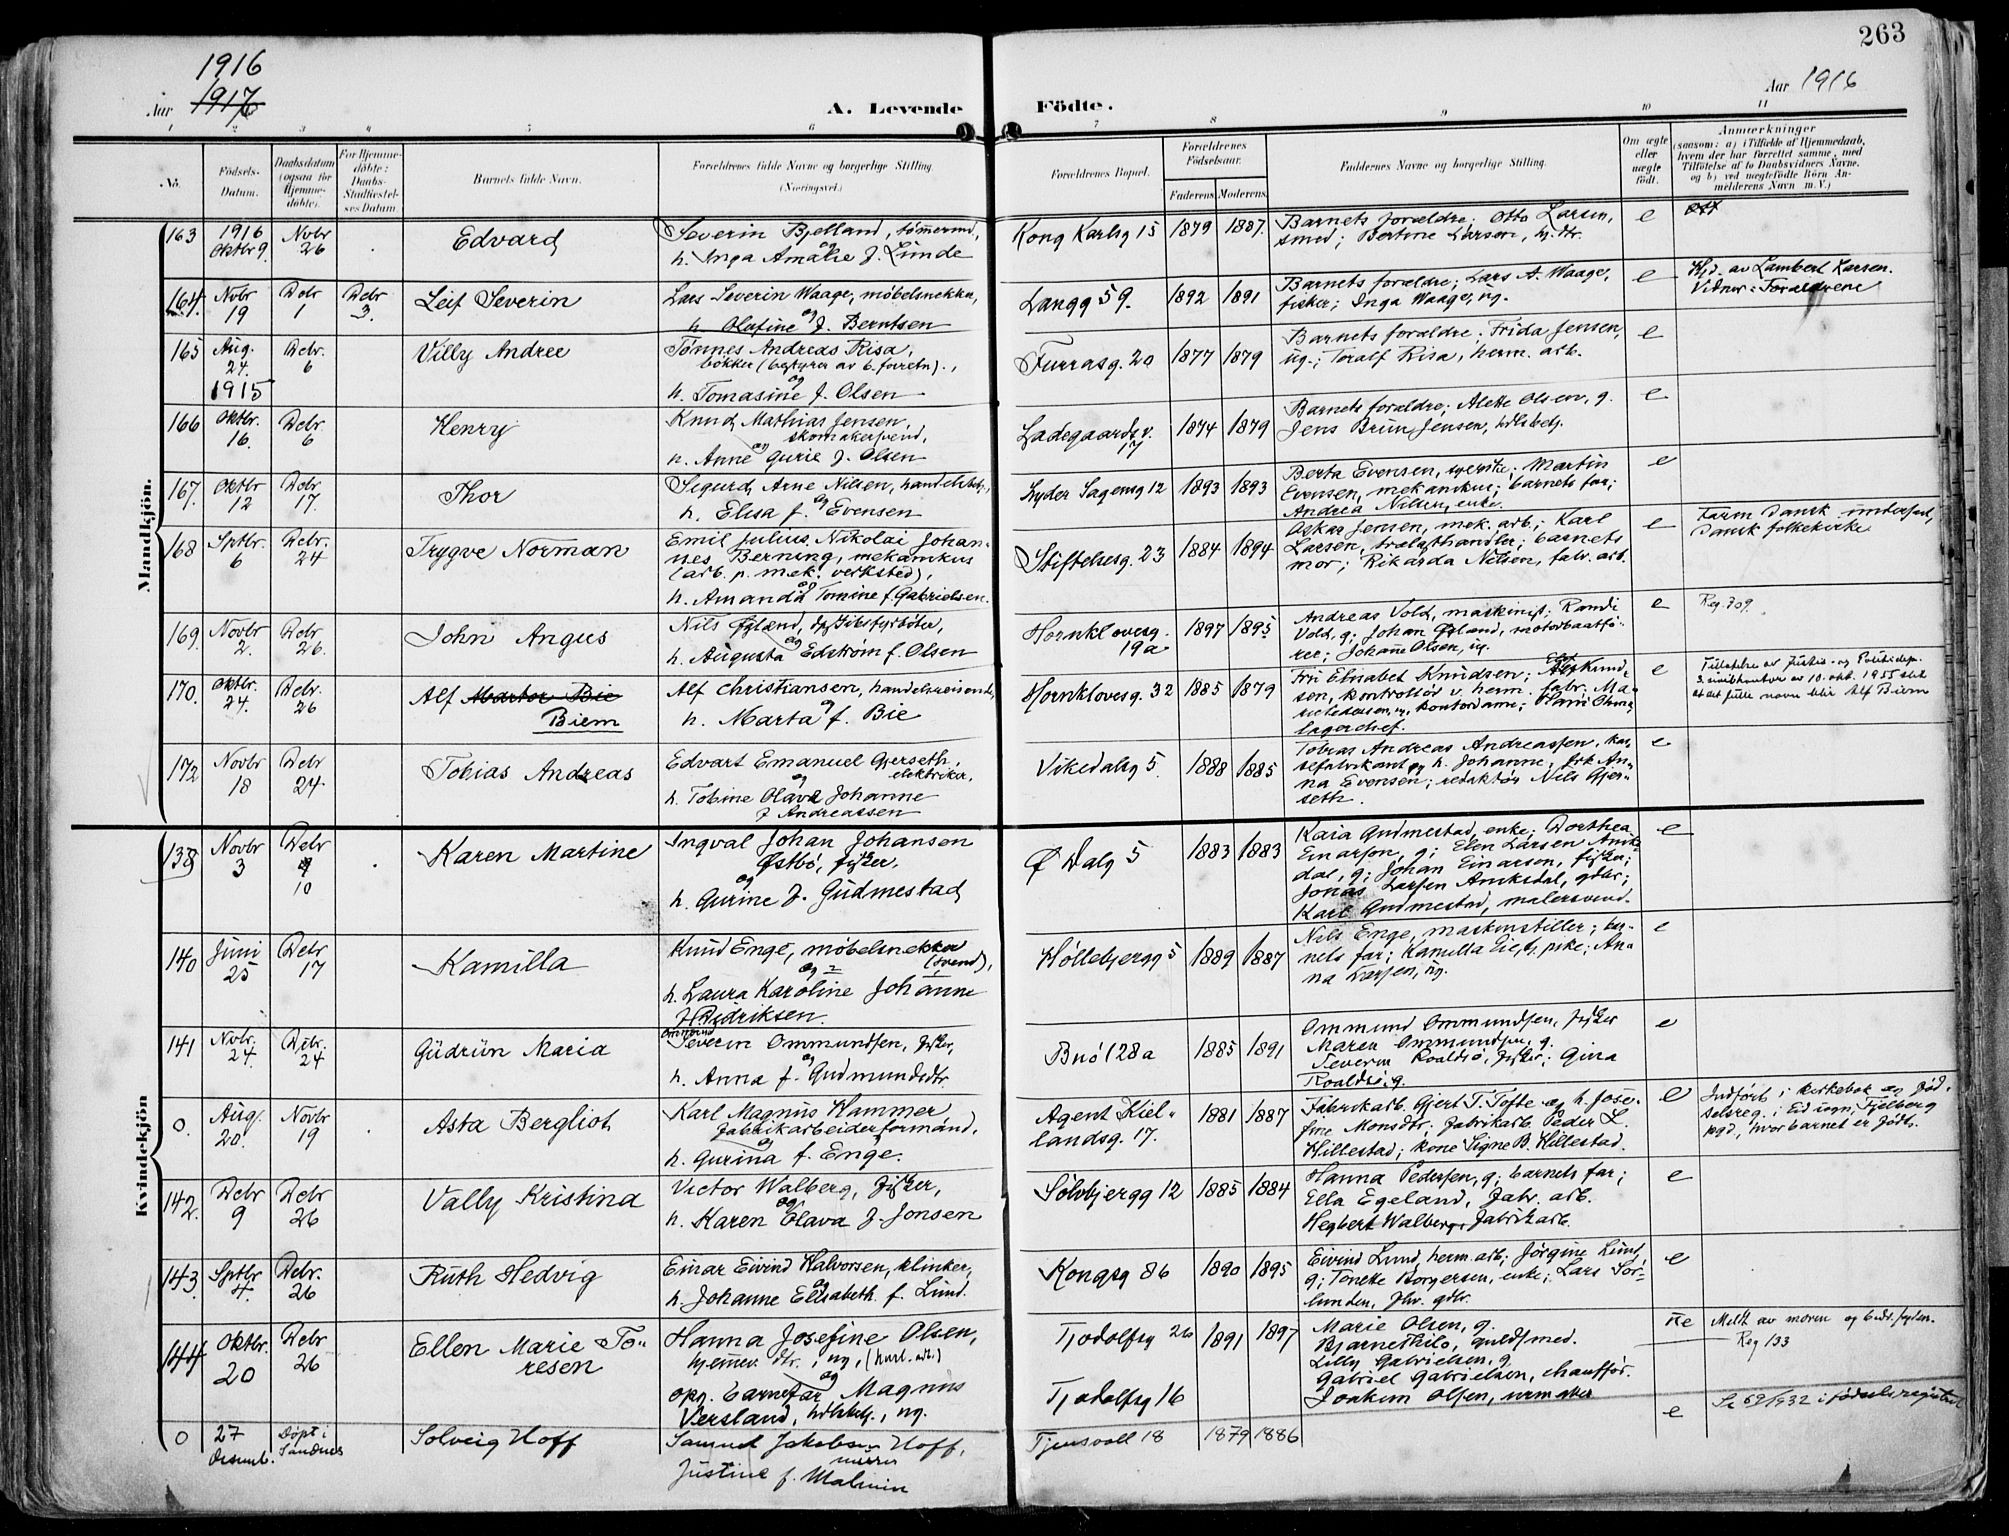 263
1916
Aar 1917
A. Levende Födte.
Aar 1916
1 2 3 4 5 6 7 8 9 10 11
No.
Födsels-Datum.
Daabsdatum (ogsaa for Hjemme-döbte).
For Hjemme-döbte: Daabs-Stadfæstel-ses Datum.
Barnets fulde Navn.
Forældrenes fulde Navne og borgerlige Stilling (Næringsvei.)
Forældrenes Bopæl.
Forældrenes Födselsaar.
Faderens. Moderens.
Faddernes Navne og borgerlige Stilling.
Om ægte eller uægte födt.
Anmærkninger
(saasom: a) i Tilfælde af Hjemmedaab, hvem der har forrettet samme, med Tilföielse af to Daabsvidners Navne, og b) ved uægtefödte Börn An-melderens Navn m. V.)
Mandkjön.
163 1916 Oktbr 9. Novbr 26 Edvard
Severin Bjelland, tømmermd,
og
h. Inga Amalie f. Lunde
Kong Karlsg 15 1879 1887.
Barnets forældre; Otto Larsen,
smed; Bertine Larsen, hj. dtr.
e
164. Novbr 19 Debr 1 Debr 3. Leif Severin
Lars Severin Waage, møbelsnekker,
og
h. Olafine f. Berntsen
Langg 59. 1892 1891
Barnets forældre; Lars A. Waage,
fisker; Inga Waage, ug.
e
Hjd. av Lambert Larsen.
Vidner: Forældrene
165 Aug. 24. 1915 Debr. 6 Villy Andree
Tønnes Andreas Risa,
bøkker (bestyrer av b. forretn).,
og
h. Tomasine f. Olsen
Furrasg. 20 1877 1879
Barnets forældre; Frida Jensen,
ug.; Toralf Risa, herm. arb.
e
166 Oktbr. 16. Debr. 6 Henry
Knud Mathias Jensen,
skomakersvend,
og
h. Anne Gurie f. Olsen
Ladegaardsv. 17 1874 1879
Barnets forældre; Alette Olsen, g.
Jens Brun Jensen, hdlsbetj.
e
167. Oktbr 12 Debr 17. Thor
Sigurd Arne Nilsen, handelsbetj.,
og
h. Elisa f. Evensen
Lyder Sagensg 12 1893 1893
Berta Evensen, syerske; Martin
Evensen, mekanikus; barnets far;
Andrea Nilsen, enke.
e
168 Sptbr. 6 Debr. 24 Trygve Norman
Emil Julius Nikolai Johan-
nes Berning, mekanikus
(arb. p. mek. verksted),
og
h. Amanda Tomine f. Gabrielsen.
Stiftelsesg. 23 1884 1894
Oskar Jensen, mek. arb.; Karl
Larsen, trælasthandler; barnets
mor; Rikarda Nilsen, fabr. arb.
e
Farm Dansk undersaat,
Dansk folkekirke
169. Novbr 2. Debr. 26. John Angus
og
h. Augusta Edstrøm f. Olsen
Hornklovesg. 19a 1897 1895
Andreas Vold, maskinist; Randi
Vold, g; Johan Øgland, motorbaatfø-
rer; Johanne Olsen, ug.
e
Reg. 709.
170. Oktbr. 24. Debr. 26 Alf Martor Bie
Biem
Alf Christiansen, handelsreisende,
og
h. Marta f. Bie
Hornklovesg. 32 1885 1879
Fru Elisabet Knudsen;
sen, kontrollør v. herm. fabr.;
lagerchef.
e
Tillatelse av Justis- og Politidep.
3. sivilkontor av 10. okt. 1955 til
at det fulle navn blir Alf Biem
172 Novbr 18 Debr 24. Tobias Andreas
Edvart Emanuel Gjerseth,
elektriker,
og
h. Tobine Olava Johanne
f Andreassen
Vikedalsg 5. 1888 1885
Tobias Andreas Andreassen,
na Evensen; redaktør Nils Gjer-
seth.
e
Kvindekjön
139 Novbr 3 Debr 10 Karen Martine
Ingval Johan Johansen
Østbö, fisker,
og
h. Gurine f. Gudmestad
Ø Dalg 5 1883 1883
Kaia Gudmestad, enke; Dorthea
Einarsen, g; Elen Larsen Aniks-
dal, g; Johan Einarsen, fisker;
Jonas Larsen Aniksdal, gdbr;
Karl Gudmestad, malersvend.
e
140 Juni 25 Debr 17 Kamilla
Knud Enge, møbelsnekker
(svend),
og
h. Laura Karoline Johanne
f. Didriksen.
Høllebjergg 5 1889 1887
Nils Enge, maskinstiller; bar-
nets far; Kamilla Eie, pike; An-
na Larsen, ug.
e
141 Novbr. 24. Debr. 24 Gudrun Maria
Ommund
Severin Ommundsen, fisker,
og
h. Anna f. Gudmundsdtr.
Buø 128a 1885 1891
Ommund Ommundsen, fisker
Maren Ommundsen, g.
Severin Roaldsø, fisker; Gina
Roaldsø, g.
e
0. Aug. 20. Novbr 19 Asta Bergliot
Karl Magnus Hammer
fabrikarbeiderformand,
og
h. Gurina f. Enge.
Agent Kiel-
landsg. 17. 1881 1887
Fabrikarb. Gjert T. Tofte og h. Jose-
fine Monsdtr. Fabrikarb. Peder L.
Hillestad; kone Signe B. Hillestad.
e
Indført i kirkebok og fød-
selsreg. i Eid sogn, Fjelberg
pgd., hvor barnet er født.
142. Debr 9 Debr 26 Vally Kristina
Victor Walberg, fisker,
og
h. Karen Olava f. Jonsen
Sølvbjergg 12 1885 1884
Hanna Pedersen, g; barnets far;
Ella Egeland, fabr. arb.
Hegbert Walberg, fabrikarb.
e
143. Sptbr 4. Debr. 26 Ruth Hedvig
Einar Eivind Halvorsen, klinker,
og
h. Johanne Elisabeth f. Lund.
Kongsg 86 1890 1895
Eivind Lund, herm. arb; Jörgine Lund,
g; Toneke Borgersen, enke; Lars Sör-
lunden, fhv. gdbr.
e
144 Oktbr. 20 Debr 26 Ellen Marie To-
resen
Hanna Josefine Olsen,
hjemmev. dtr., ug,
og
opg. barnefar Magnus
Versland, hdlsbetj., ug.
Tjodolfsg 26 1891 1897
Tjodolfsg 16
Marie Olsen, g.
Bjarne Thilo, guldsmed.
Lilly Gabrielsen, g.
Gabriel Gabrielsen, chauffør.
Joakim Olsen, urmaker
Meldt av moren
Reg 133
0 27 Desemb. Døpt i Sandnes Solveig Hoff
Samuel Jakobsen Hoff,
murer
Justine f. Malmin
Tjensvoll 18 1879 1886
e
Se 69/1932 i fødselsregistret